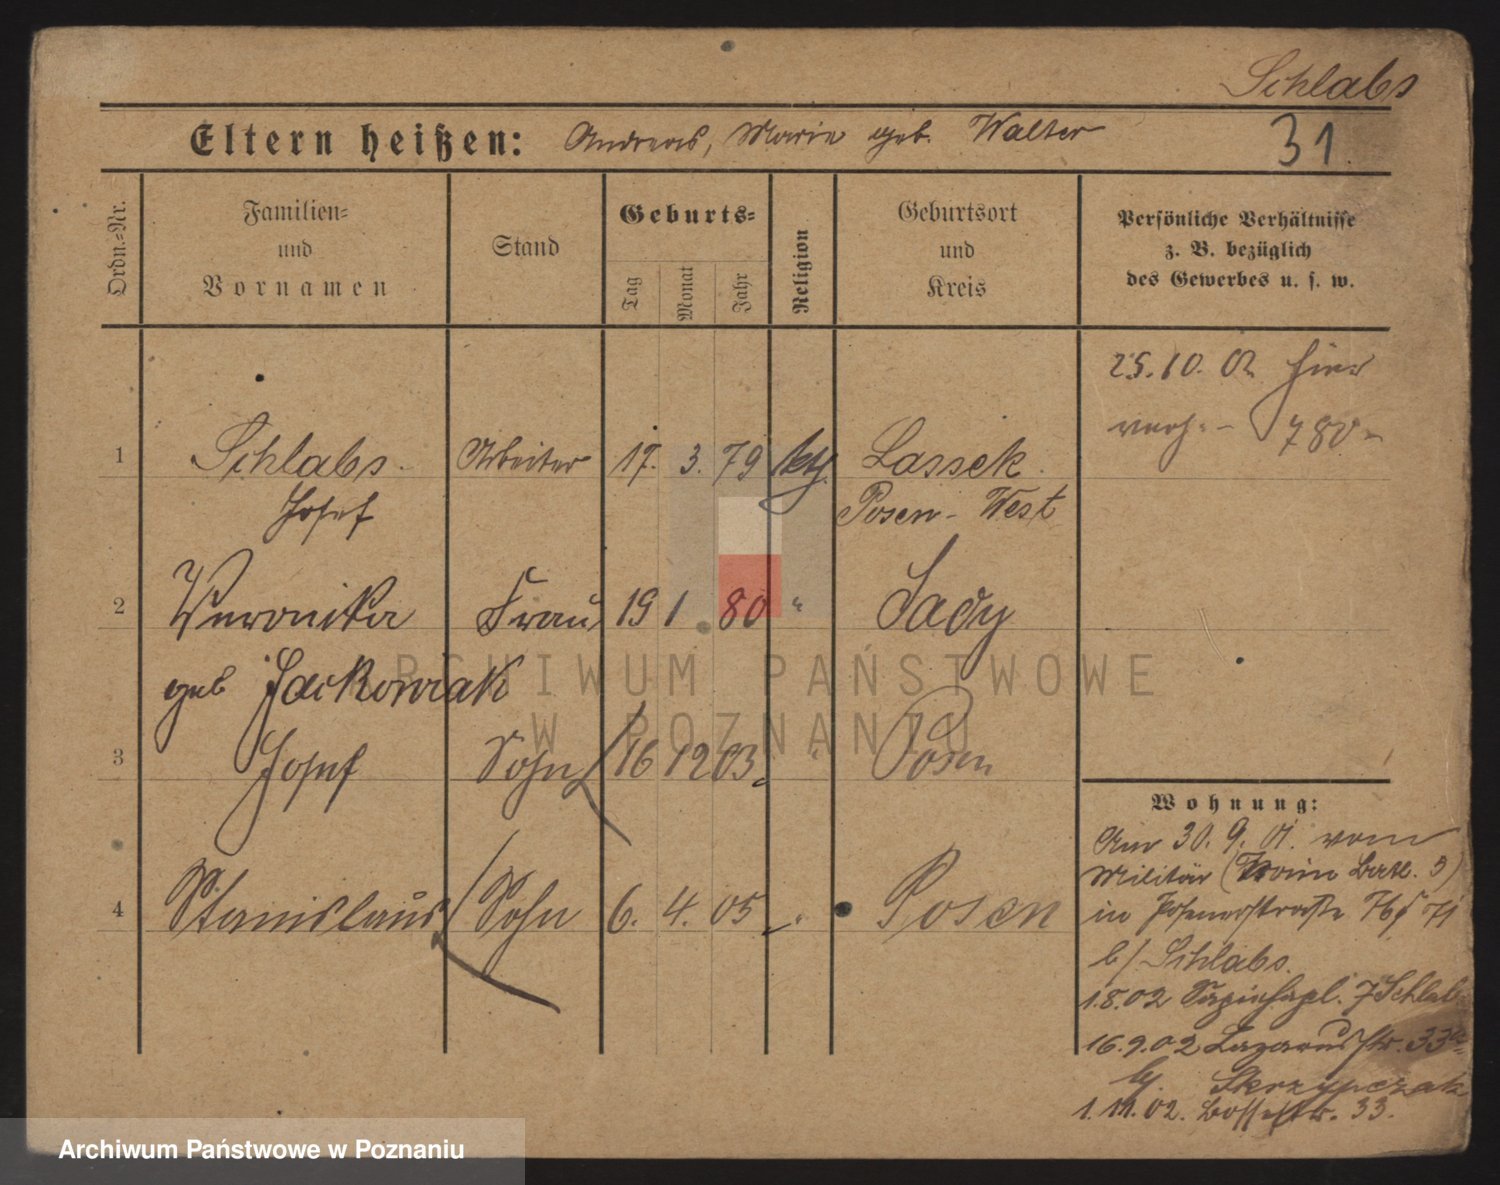 Schlabs
Eltern heißen: Andreas, Marie geb. Walter
31.
Ordn.=Nr.
Familien=
und
Vornamen
Stand
Geburts=
Tag
Monat
Jahr
Religion
Geburtsort
und
Kreis
Persönliche Verhältnisse
z. B. bezüglich
des Gewerbes u. s. w.
25.10.02 hier
780
1 Schlabs Arbeiter 17. 3. 79 Lassek
Josef Posen-West
2 Veronika Frau 19 1 80 " Sady
geb Jackowiak
3 Josef Sohn 16 12 03 " Posen
4 Stanislaus Sohn 6. 4. 05 " Posen
Wohnung:
Am 30.9.01. vom
Militär (Train Batl. 5)
in Posenerstraße
b/ Schlabs.
1.8.02 7 Schlabs
16.9.02 Lazarusstr. 33a
bj. Skrzypczak
1.11.02. Bossestr. 33.
ARCHIWUM PAŃSTWOWE
W POZNANIU
Archiwum Państwowe w Poznaniu